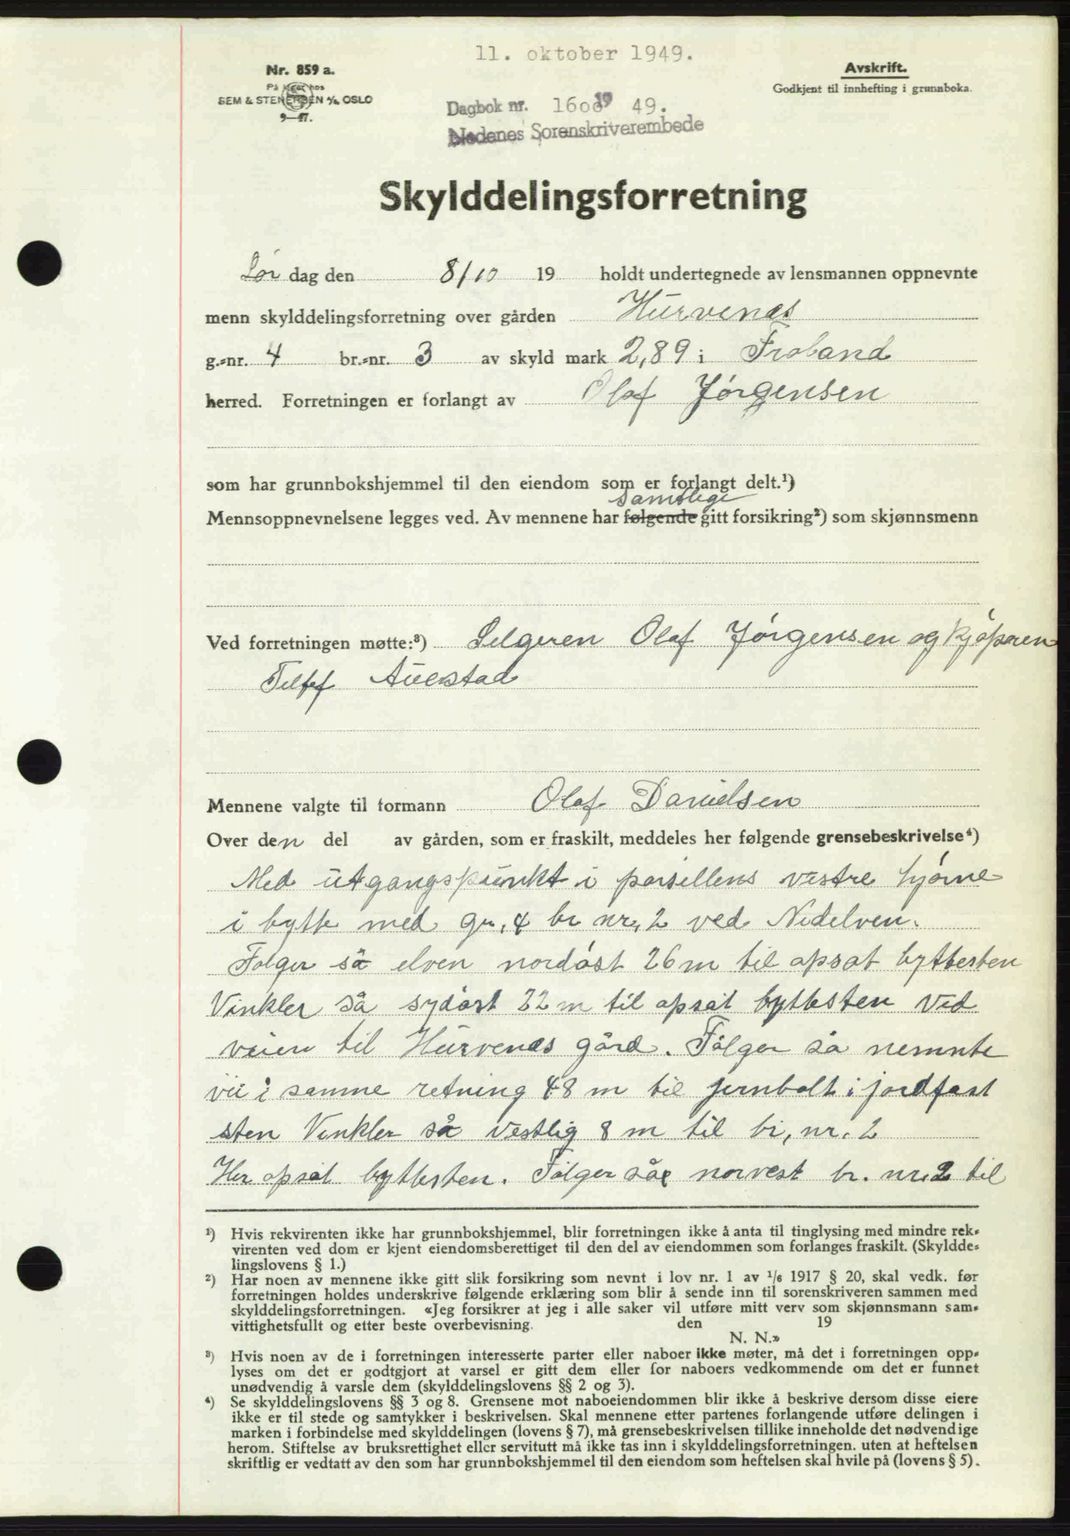 11. oktober 1949.
Nr. 859 a.
På lager hos
SEM & STENERSEN A/S OSLO
9—47.
Avskrift.
Godkjent til innhefting i grunnboka.
Dagbok nr. 1600 19 49.
Nedenes Sorenskriverembede
Skylddelingsforretning
Lør dag den 8/10 19 holdt undertegnede av lensmannen oppnevnte
menn skylddelingsforretning over gården Hurvenes
g.-nr. 4 br.-nr. 3 av skyld mark 2,89 i Froland
herred. Forretningen er forlangt av Olaf Jørgensen
som har grunnbokshjemmel til den eiendom som er forlangt delt.¹)
samtlige
Mennsoppnevnelsene legges ved. Av mennene har følgende gitt forsikring²) som skjønnsmenn
Ved forretningen møtte:³) Selgeren Olaf Jørgensen og kjøperen
Tellef Auestad
Mennene valgte til formann Olaf Danielsen
Over den del av gården, som er fraskilt, meddeles her følgende grensebeskrivelse⁴)
Med utgangspunkt i parsellens vestre hjørne
i bytte med gr, 4 br nr, 2 ved Nidelven.
Følger så elven nordøst 26 m til opsat byttesten
Vinkler så sydøst 22 m til opsat byttesten ved
veien til Hurvenes gård. Følger så nemnte
vei i samme retning 48 m til jernbolt i jordfast
sten Vinkler så vestlig 8 m til br, nr. 2
Her opsat byttesten. Følger så norvest br. nr. 2 til
¹) Hvis rekvirenten ikke har grunnbokshjemmel, blir forretningen ikke å anta til tinglysing med mindre rek-
virenten ved dom er kjent eiendomsberettiget til den del av eiendommen som forlanges fraskilt. (Skyldde-
lingslovens § 1.)
²) Har noen av mennene ikke gitt slik forsikring som nevnt i lov nr. 1 av 1/6 1917 § 20, skal vedk. før
forretningen holdes underskrive følgende erklæring som blir å sende inn til sorenskriveren sammen med
skylddelingsforretningen. «Jeg forsikrer at jeg i alle saker vil utføre mitt verv som skjønnsmann sam-
vittighetsfullt og etter beste overbevisning. den 19
N. N.»
³) Hvis noen av de i forretningen interesserte parter eller naboer ikke møter, må det i forretningen opp-
lyses om det er godtgjort at varsel er gitt dem eller for naboers vedkommende om det er funnet
unødvendig å varsle dem (skylddelingslovens §§ 2 og 3).
⁴) Se skylddelingslovens §§ 3 og 8. Grensene mot naboeiendommen blir ikke å beskrive dersom disse eiere
ikke er til stede og samtykker i beskrivelsen. Skal mennene etter partenes forlangende utføre delingen i
marken i forbindelse med skylddelingen (lovens § 7), må grensebeskrivelsen tillike inneholde det nødvendige
herom. Stiftelse av bruksrettighet eller servitutt må ikke tas inn i skylddelingsforretningen. uten at heftelsen
skriftlig er vedtatt av den som har grunnbokshjemmel til den eiendom som heftelsen skal hvile på (lovens § 5).